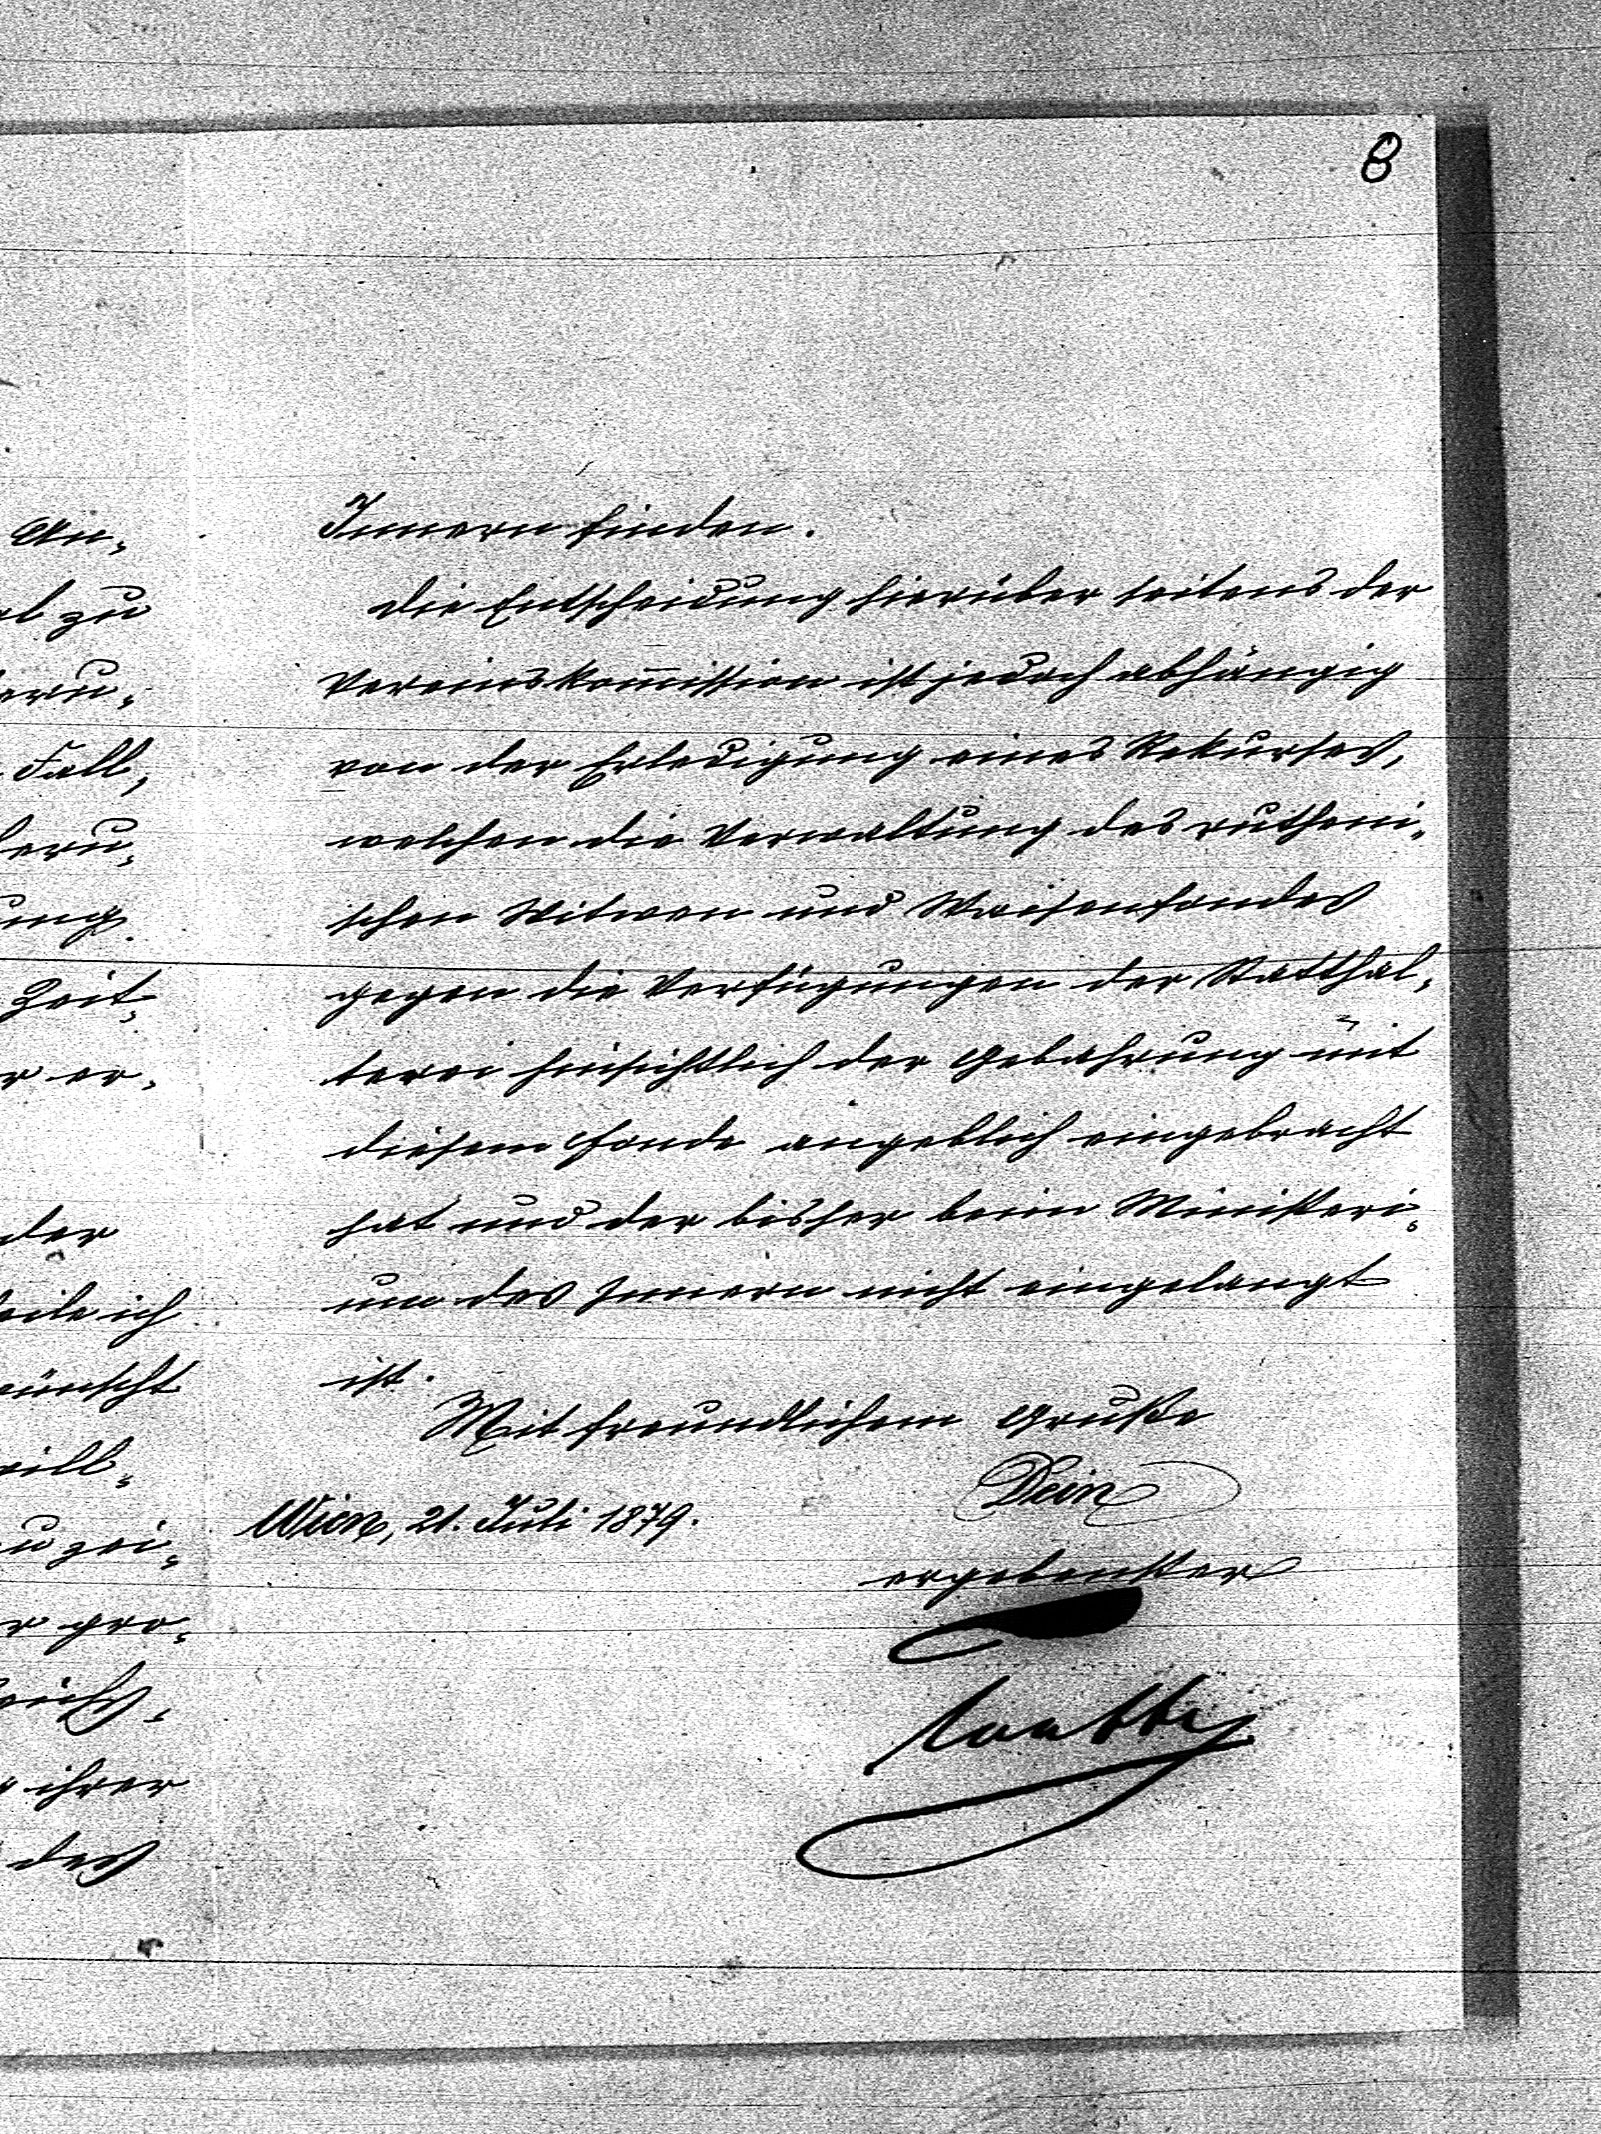 8
An-
zu
Fall,
Zeit-
er-
der
ich
wünscht
will-
zuzei-
gro-
ihrer
des
Innern finden.
Die Entscheidung hierüber seitens der
Vereinskom̅ission ist jedoch abhängig
von der Erledigung eines Rekurses,
welchen die Verwaltung des rutheni-
schen Witwen und Waisenfondes
gegen die Verfügungen der Statthal-
terei hinsichtlich der Gebahrung mit
diesem Fonde angeblich eingebracht
hat und der bisher beim Ministeri-
um des Innern nicht eingelangt
ist.
Mit freundlichem Gruße
Dein
Wien, 21. Juli 1879.
ergebenster